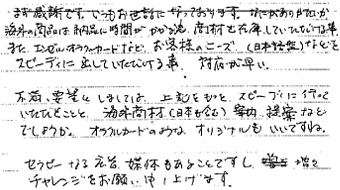 まず感謝です。いつもお世話になっております。なにがありがたいか
海外の商品は納品に時間がかかる為、商材を在庫していただける事
また、エンゼルオラクルカードなど、お客様のニーズ(日本語盤)などを
スピーディに出していただける事、対応が早い。
不満、要望としましては、上記をもっとスピーディに行って
いただくことと、海外商材(日本も含む)案内、提案など
でしょうか。オラクルカードのような オリジナルもいいですね。
セラピーなる広告、媒体もあることですし 増々
チャレンジをお願い申し上げます。